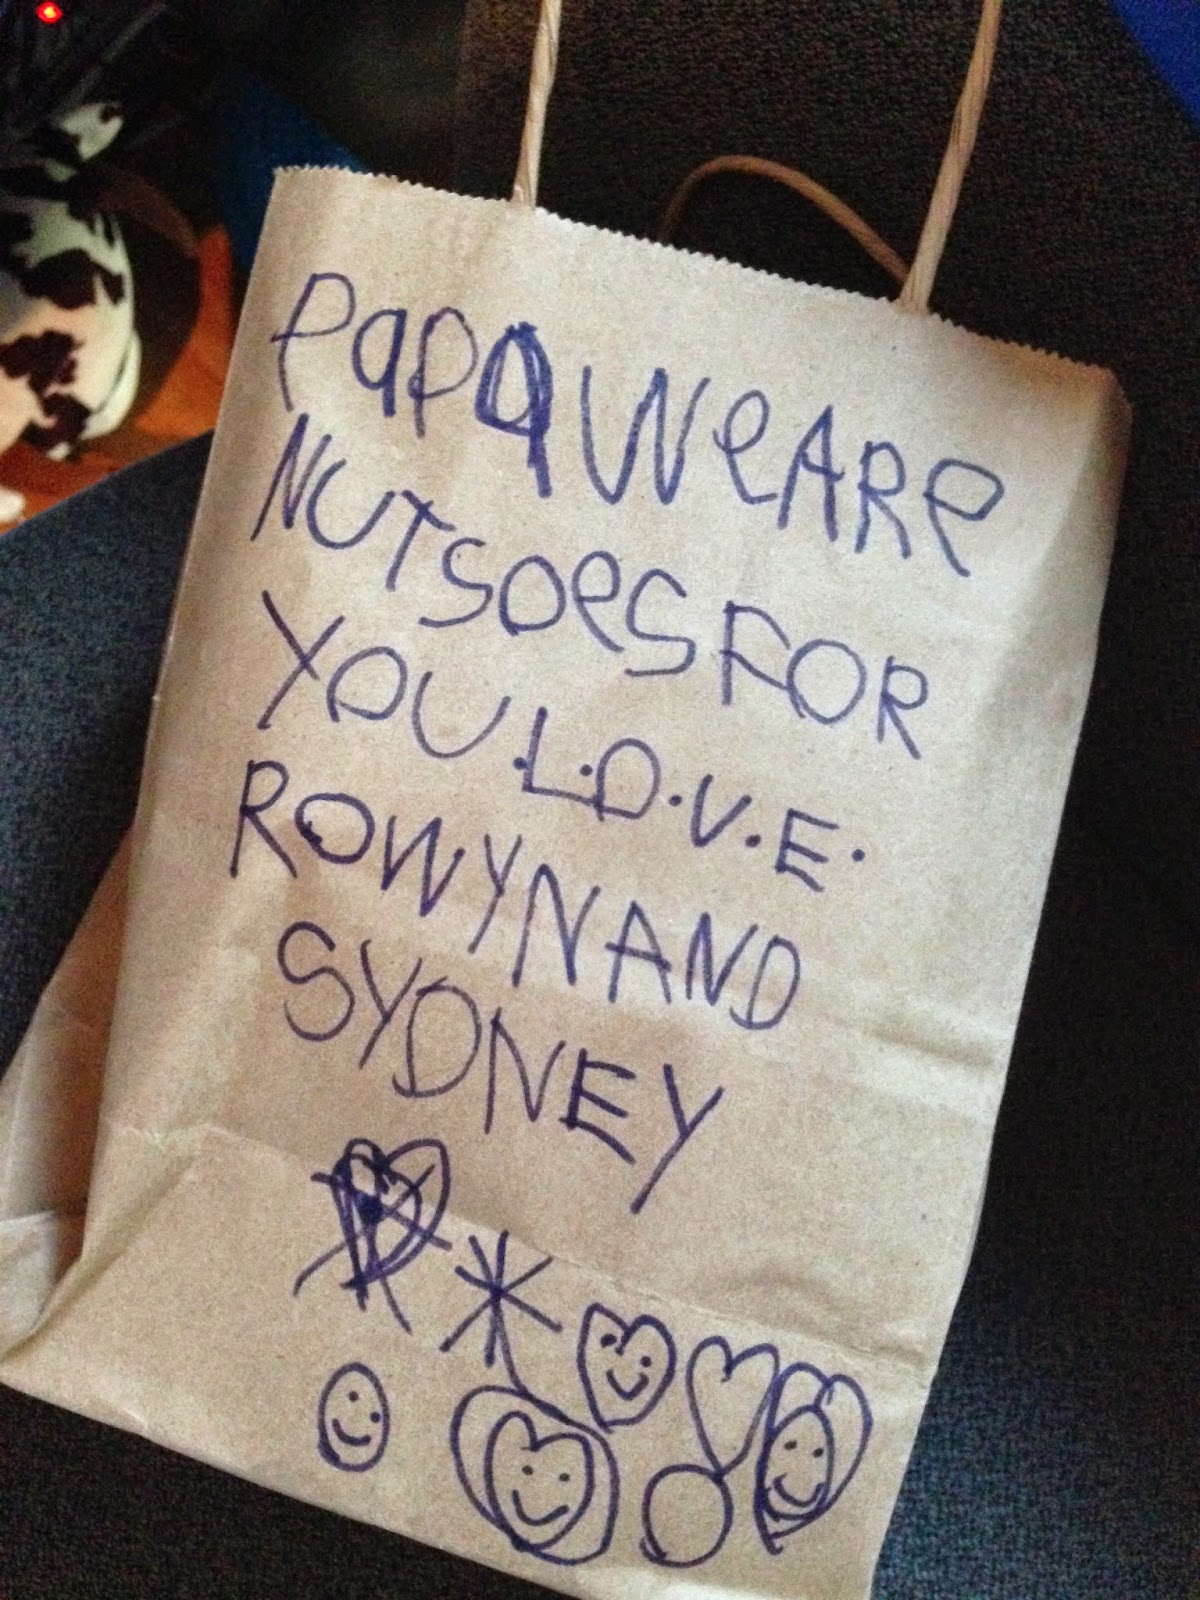 papa WeARe
NUTSOeS FOR
YOU .L.O.V.E.
ROWYN AND
SYDNEY